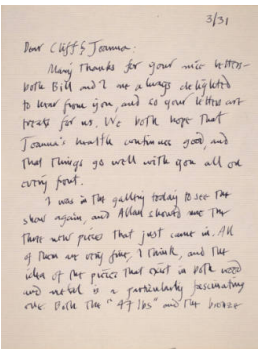 3/31
Dear Cliff & Joanna:
Many thanks for your nice letters -
both Bill and I are always delighted
to hear from you, and so your letters are
treats for us. We both hope that
Joanna's health continues good, and
that things go well with you all on
every front.
I was in the gallery today to see the
show again, and Allan showed me the
three new pieces that just came in. All
of them are very fine, I think, and the
idea of the pieces that exist in both wood
and metal is a particularly fascinating
one. Both the "47 lbs" and the bronze